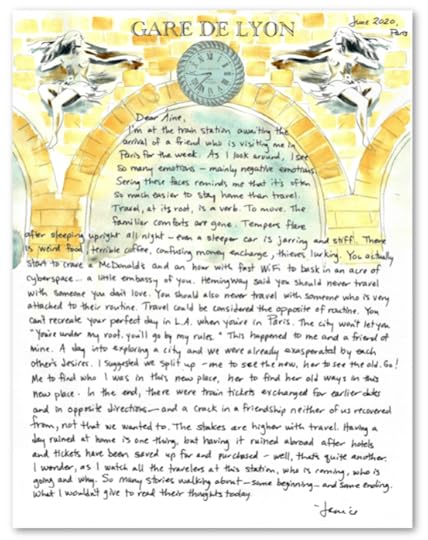 GARE DE LYON
June 2020,
Paris
Dear Aine,
I'm at the train station awaiting the
arrival of a friend who is visiting me in
Paris for the week. As I look around, I see
so many emotions - mainly negative emotions.
Seeing these faces reminds me that it's often
so much easier to stay home than travel.
Travel, at its root, is a verb. To move. The
familiar comforts are gone. Tempers flare
after sleeping upright all night - even a sleeper car is jarring and stiff. There
is weird food, terrible coffee, confusing money exchange, thieves lurking. You actually
start to crave a McDonald's and an hour with fast WiFi to bask in an acre of
cyberspace... a little embassy of you. Hemingway said you should never travel
with someone you don't love. You should also never travel with someone who is very
attached to their routine. Travel could be considered the opposite of routine. You
can't recreate your perfect day in L.A. when you're in Paris. The city won't let you.
"You're under my roof, you'll go by my rules." This happened to me and a friend of
mine. A day into exploring a city and we were already exasperated by each
other's desires. I suggested we split up - me to see the new, her to see the old. Go!
Me to find who I was in this new place, her to find her old ways in this
new place. In the end, there were train tickets exchanged for earlier dates
and in opposite directions - and a crack in a friendship neither of us recovered
from, not that we wanted to. The stakes are higher with travel. Having a
day ruined at home is one thing, but having it ruined abroad after hotels
and tickets have been saved up for and purchased - well, that's quite another.
I wonder, as I watch all the travelers at this station, who is coming, who is
going and why. So many stories walking about - some beginning - and some ending.
What I wouldn't give to read their thoughts today.
-Janice